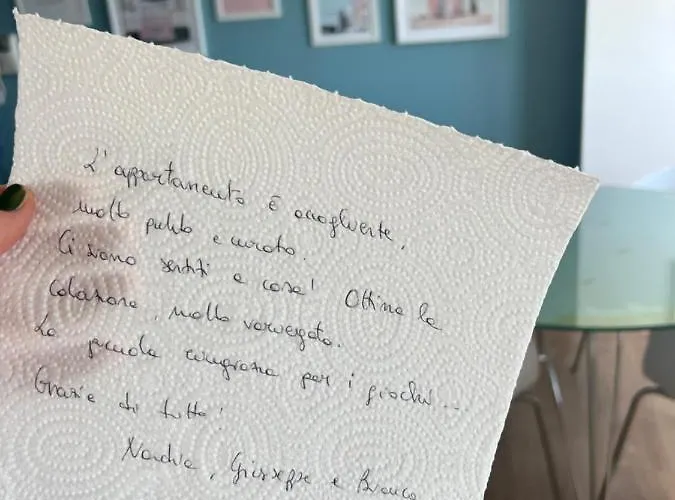 L'appartamento è accogliente,
molto pulito e curato.
Ci siamo sentiti a casa! Ottima la
colazione, molto variegata.
La piccola ringrazia per i giochi...
Grazie di tutto!
Nadia, Giuseppe e Bianca